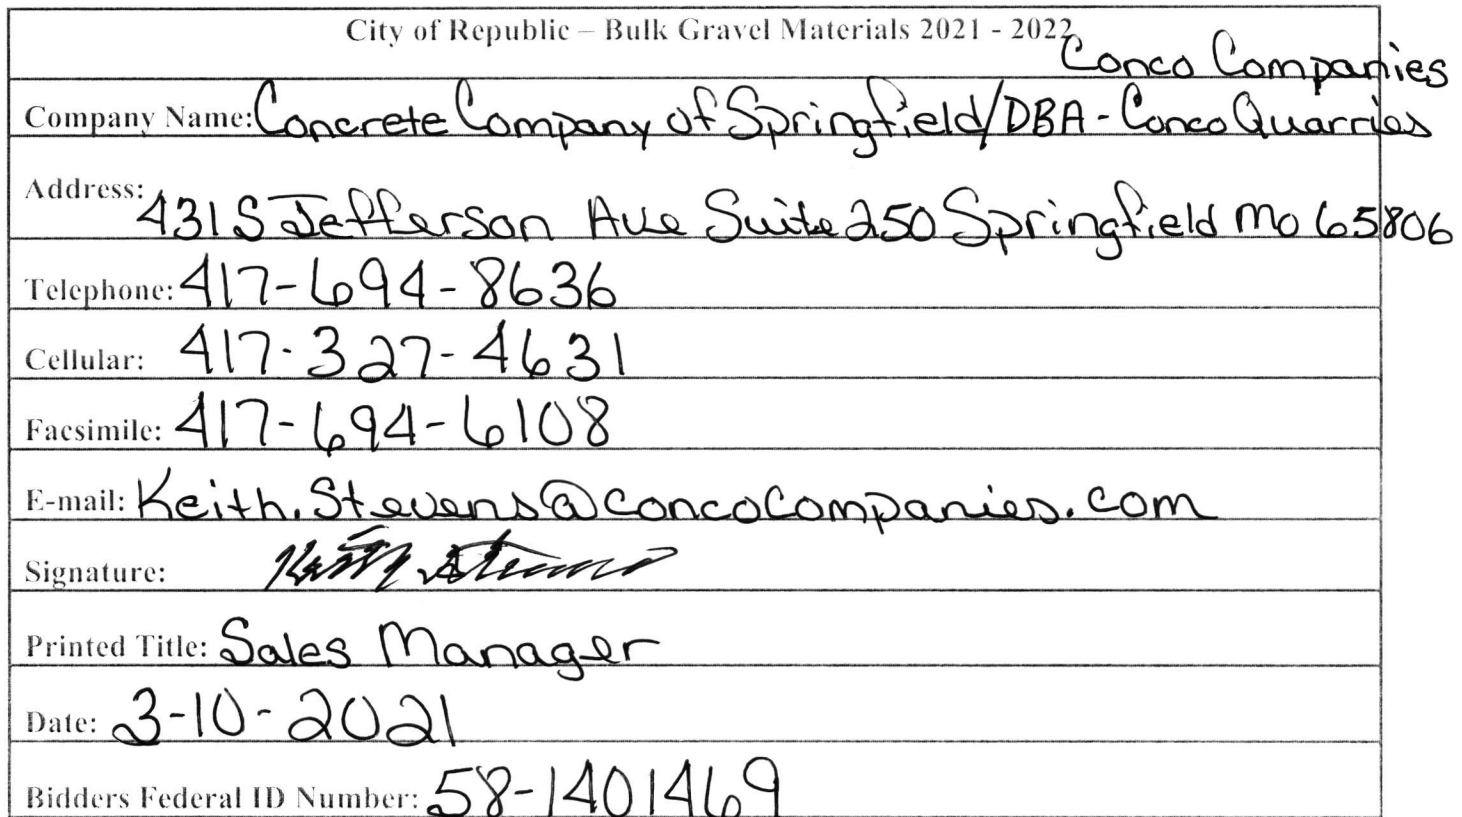 City of Republic – Bulk Gravel Materials 2021 - 2022
Conco Companies
Company Name: Concrete Company of Springfield/DBA - Conco Quarries
Address: 431 S Jefferson Ave Suite 250 Springfield Mo 65806
Telephone: 417-694-8636
Cellular: 417-327-4631
Facsimile: 417-694-6108
E-mail: Keith.Stevens@concoCompanies.com
Signature: Keith Stevens
Printed Title: Sales Manager
Date: 3-10-2021
Bidders Federal ID Number: 58-1401469